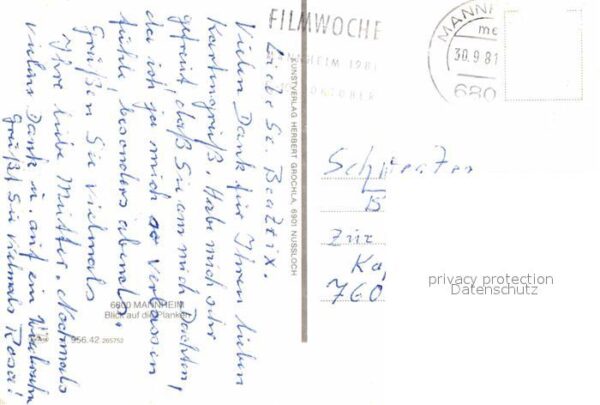 FILMWOCHE
MANNHEIM 1981
OKTOBER
MANNHE
me
30.9.81
680
Liebe Sr. Beatrix.
Vielen Dank für Ihren lieben
Kartengruß. Habe mich sehr
gefreut, daß Sie an mich dachten,
da ich ja mich so verlassen
fühle, besonders abends.
Grüßen Sie vielmals
Ihre liebe Mutter. Nochmals
vielen Dank u. auf ein
Grüßt Sie vielmals Rosa!
KUNSTVERLAG HERBERT GROCHLA, 6901 NUSSLOCH
6800 MANNHEIM
Blick auf die Planken
956.42 265752
Schwester
B
Zur
Ka
760
privacy protection
Datenschutz